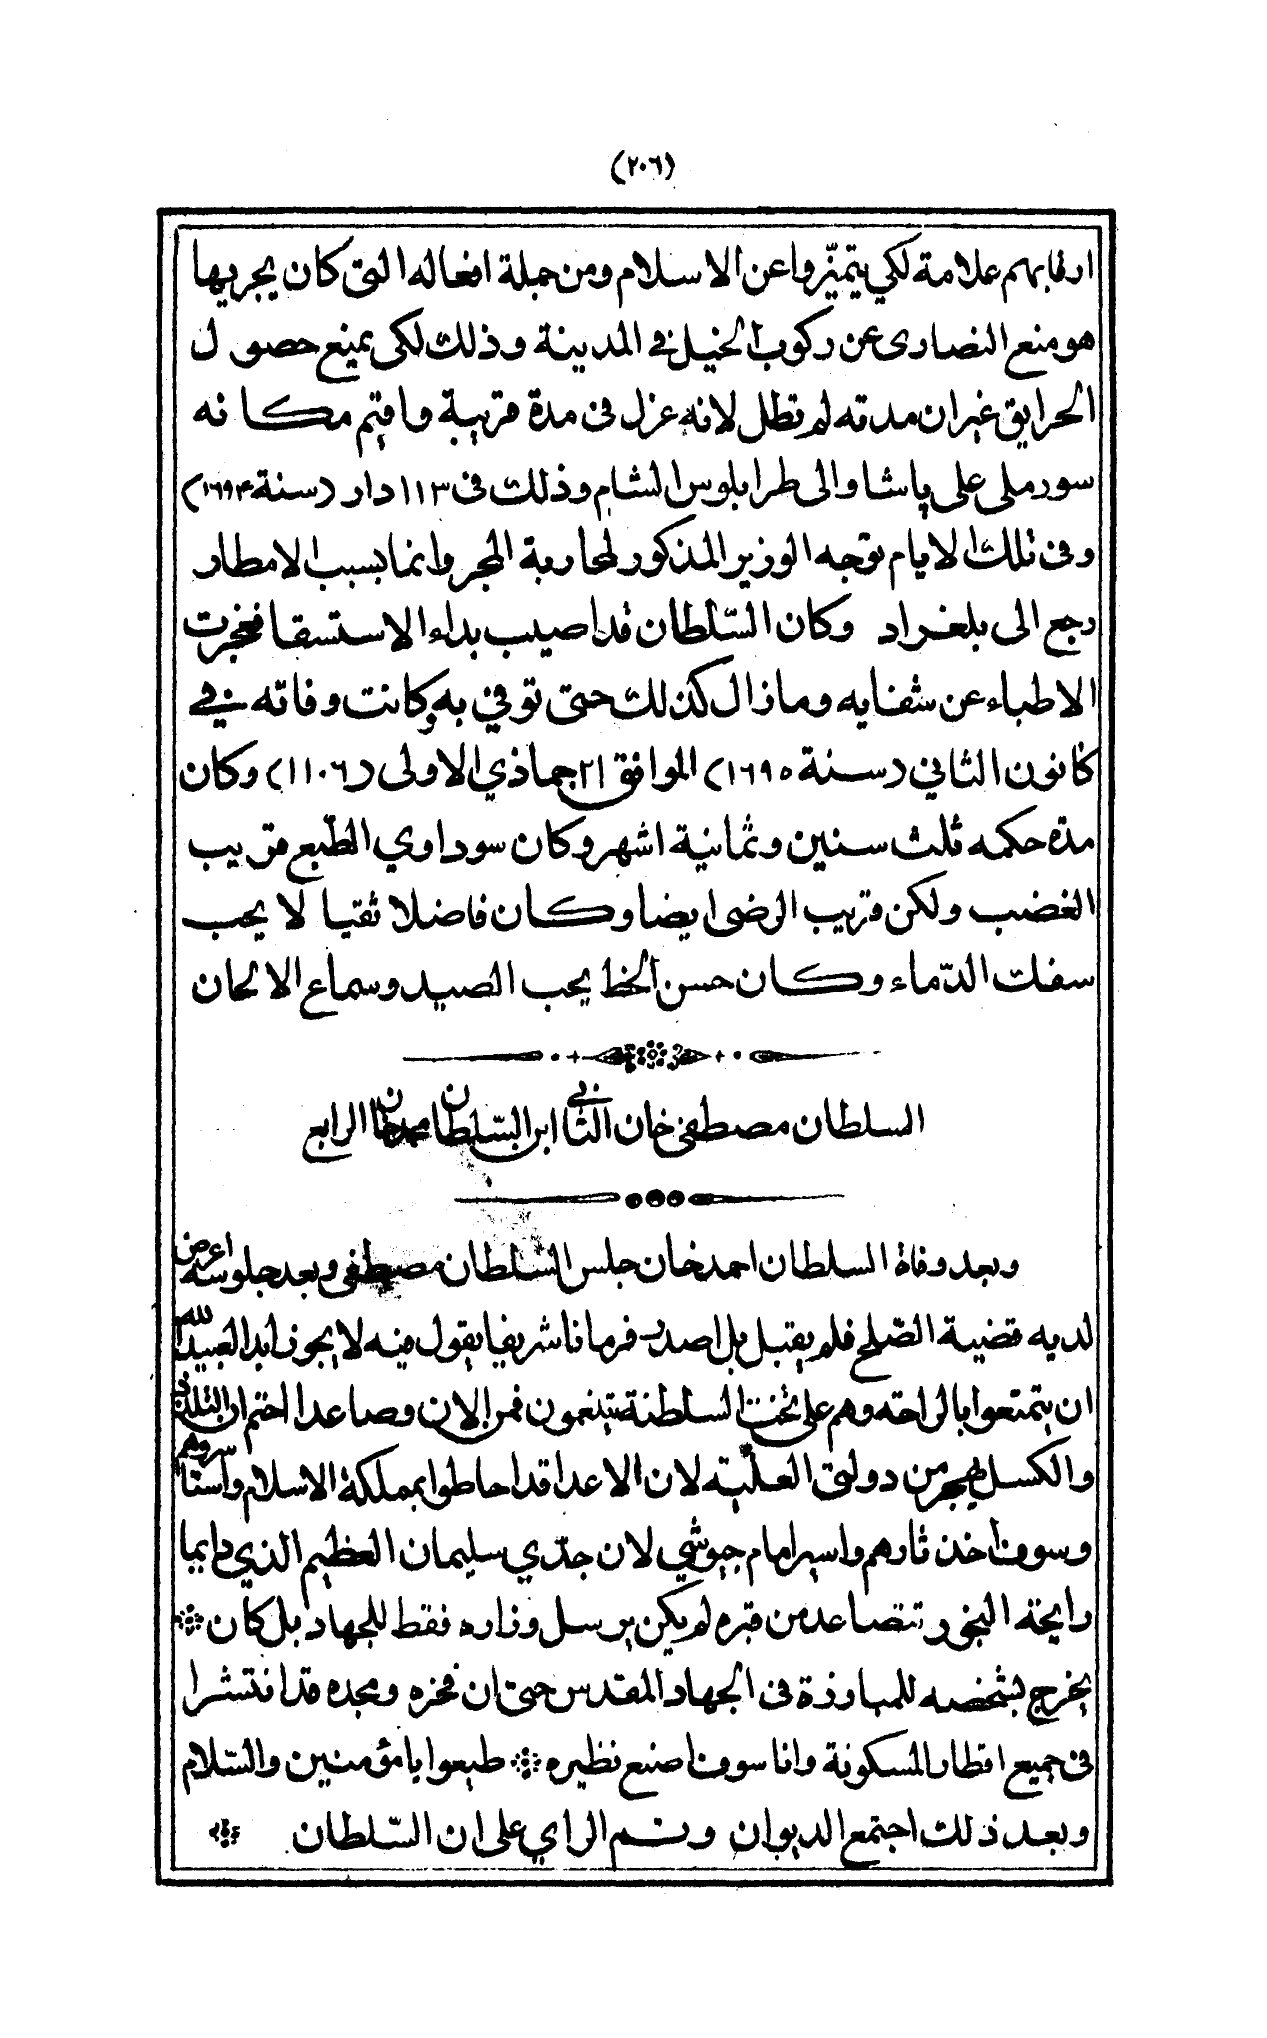 (٢٠٦)
ارقابهم علامة لكي يتميّزوا عن الاسلام ومن جملة افعاله التى كان يجريها
هو منع النصارى عن ركوب الخيل في المدينة وذلك لكى يمنع حصول
الحرايق غير ان مدته لم تطل لانه عزل فى مدة قريبة واقيم مكانه
سورملى على پاشا والى طرابلوس الشام وذلك فى ١١٣ دار (سنة ١٦٩٤)
وفى تلك الايام توجه الوزير المذكور لمحاربة المجر وانما بسبب الامطار
رجع الى بلغراد وكان السّلطان قد اصيب بداء الاستسقا فعجزت
الاطباء عن شفايه وما زال كذلك حتى توفي به وكانت وفاته في
كانون الثاني (سنة ١٦٩٥) الموافق ٢١ جماذي الاولى (١١٠٦) وكان
مدة حكمه ثلث سنين وثمانية اشهر وكان سوداوي الطّبع قريب
الغضب ولكن قريب الرضى ايضا وكان فاضلا تقيا لا يحب
سفك الدّماء وكان حسن الخط يحب الصيد وسماع الالحان
السلطان مصطفى خان الثاني ابن السّلطان محمد خان الرابع
وبعد وفاة السلطان احمد خان جلس السّلطان مصطفى وبعد جلوسه اعرض
لديه قضية الصّلح فلم يقبل بل اصدر فرمانا شريفا يقول فيه لا يجوز ابدا لعبيد الله
ان يتمتعوا بالراحة وهم على تخت السلطنة يتنعمون فمن الان وصاعدا احتم ان التلذذ
والكسل يهجر من دولتى العليّة لان الاعدا قد احاطوا بمملكة الاسلام واستاسروهم
وسوف اخذ ثارهم واسير امام جيوشي لان جدّي سليمان العظيم الذي دايما
رايحة البخور تتصاعد من قبره لم يكن يرسل وزاره فقط للجهاد بل كان
يخرج بشخصه للمبارزة فى الجهاد المقدس حتى ان فخره ومجده قد انتشرا
فى جميع اقطار المسكونة وانا سوف اصنع نظيره طيعوا يا مؤمنين والسّلام
وبعد ذلك اجتمع الديوان وتم الراي على ان السّلطان